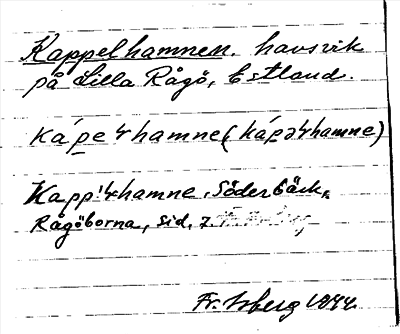 Kappelhamnen. havsvik
på Lilla Rågö, Estland.
kápe4hamne (kápə4hamne)
Kapp'4hamne, Söderbäck,
Rågöborna, sid. 7.
Fr. Isberg 1944